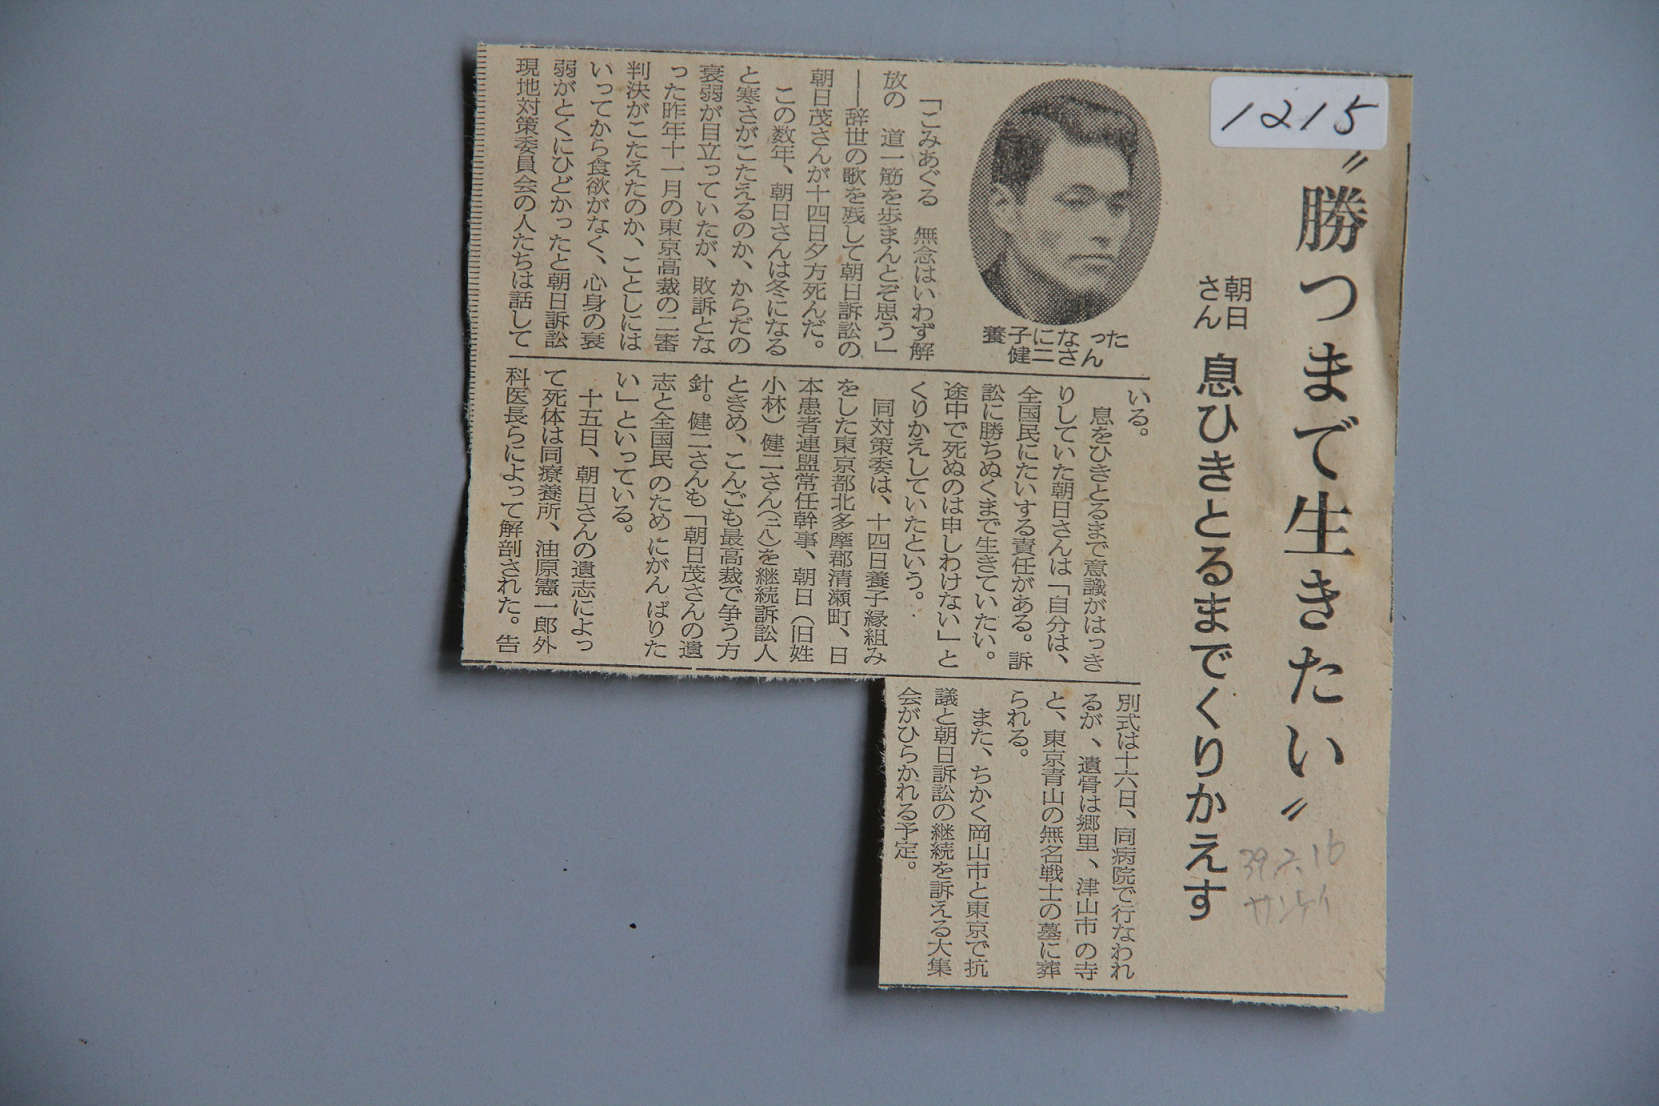 1215
〝勝つまで生きたい〟
朝日
さん
息ひきとるまでくりかえす
39.2.16
サンケイ
養子になった
健二さん
「こみあぐる　無念はいわず解
放の　道一筋を歩まんとぞ思う」
――辞世の歌を残して朝日訴訟の
朝日茂さんが十四日夕方死んだ。
この数年、朝日さんは冬になる
と寒さがこたえるのか、からだの
衰弱が目立っていたが、敗訴とな
った昨年十一月の東京高裁の二審
判決がこたえたのか、ことしには
いってから食欲がなく、心身の衰
弱がとくにひどかったと朝日訴訟
現地対策委員会の人たちは話して
いる。
息をひきとるまで意識がはっき
りしていた朝日さんは「自分は、
全国民にたいする責任がある。訴
訟に勝ちぬくまで生きていたい。
途中で死ぬのは申しわけない」と
くりかえしていたという。
同対策委は、十四日養子縁組み
をした東京都北多摩郡清瀬町、日
本患者連盟常任幹事、朝日（旧姓
小林）健二さん（二八）を継続訴訟人
ときめ、こんごも最高裁で争う方
針。健二さんも「朝日茂さんの遺
志と全国民のためにがんばりた
い」といっている。
十五日、朝日さんの遺志によっ
て死体は同療養所、油原憲一郎外
科医長らによって解剖された。告
別式は十六日、同病院で行なわれ
るが、遺骨は郷里、津山市の寺
と、東京青山の無名戦士の墓に葬
られる。
また、ちかく岡山市と東京で抗
議と朝日訴訟の継続を訴える大集
会がひらかれる予定。